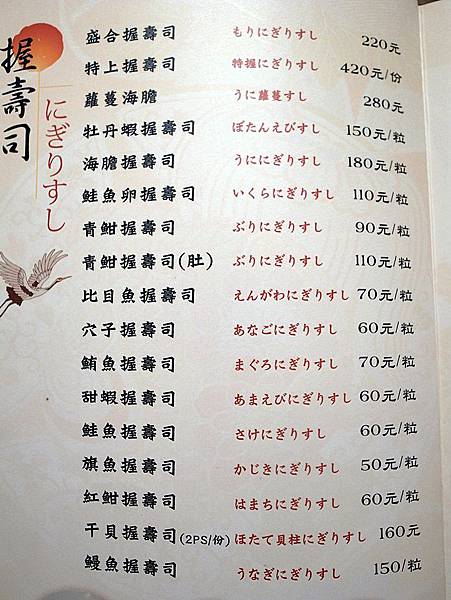 握壽司
にぎりすし
盛合握壽司 もりにぎりすし 220元
特上握壽司 特握にぎりすし 420元/份
蘿蔓海膽 うに蘿蔓すし 280元
牡丹蝦握壽司 ぼたんえびすし 150元/粒
海膽握壽司 うににぎりすし 180元/粒
鮭魚卵握壽司 いくらにぎりすし 110元/粒
青魽握壽司 ぶりにぎりすし 90元/粒
青魽握壽司(肚) ぶりにぎりすし 110元/粒
比目魚握壽司 えんがわにぎりすし 70元/粒
穴子握壽司 あなごにぎりすし 60元/粒
鮪魚握壽司 まぐろにぎりすし 70元/粒
甜蝦握壽司 あまえびにぎりすし 60元/粒
鮭魚握壽司 さけにぎりすし 60元/粒
旗魚握壽司 かじきにぎりすし 50元/粒
紅魽握壽司 はまちにぎりすし 60元/粒
干貝握壽司(2PS/份) ほたて貝柱にぎりすし 160元
鰻魚握壽司 うなぎにぎりすし 150/粒